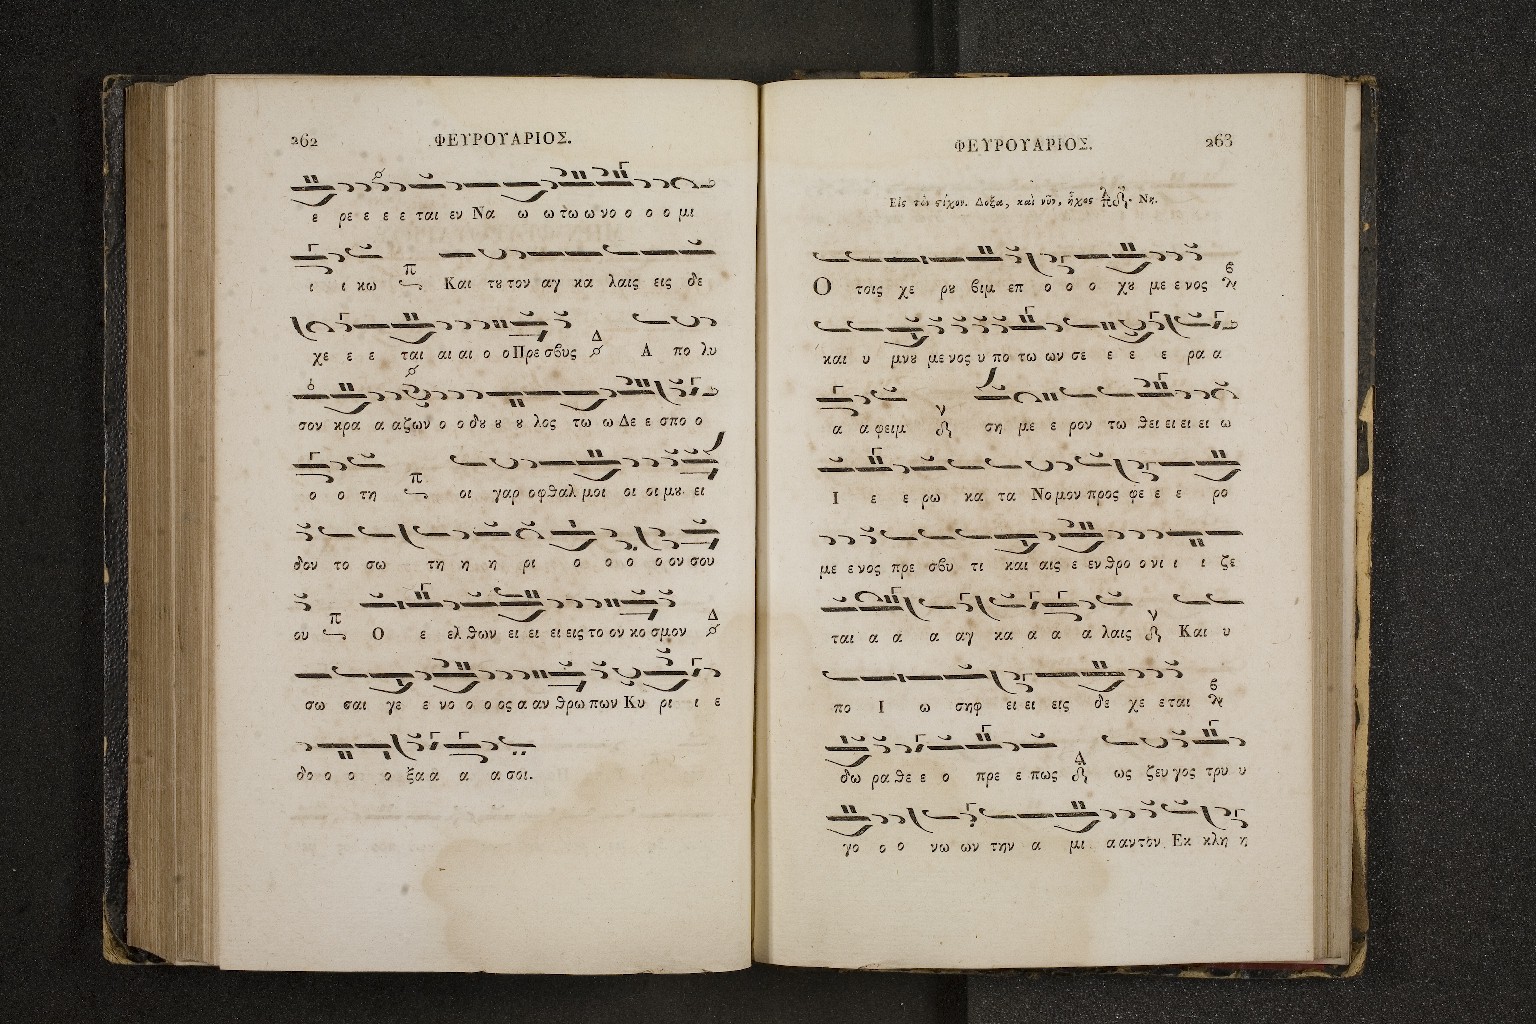 262
ΦΕΥΡΟΥΑΡΙΟΣ.
ε ρε ε ε ε ται εν Να ω ω τω ω νο ο ο ο μι
ι ι κω Και τȣ τον αγ κα λαις εις δε
χε ε ε ται αι αι ο ο Πρε σβυς Α πο λυ
σον κρα α αζων ο ο δȣ ȣ ȣ λος τω ω Δε ε σπο ο
ο ο τη οι γαρ οφθαλ μοι οι οι μȣ ει
δον το σω τη η η ρι ο ο ο ο ον σου
ου Ο ε ελ θων ει ει ει εις το ον κο σμον
σω σαι γε ε νο ο ο ος α αν θρω πων Κυ ρι ι ε
δο ο ο ο ξα α α α σοι.
ΦΕΥΡΟΥΑΡΙΟΣ.
263
Εἰς τὸν στίχον. Δόξα, καὶ νῦν, ἦχος Νη.
Ο τοις χε ρȣ βιμ επ ο ο ο χȣ με ε νος
και υ μνȣ με νος υ πο τω ων σε ε ε ε ρα α
α α φειμ ση με ε ρον τω θει ει ει ει ω
Ι ε ε ρω κα τα Νο μον προς φε ε ε ρο
με ε νος πρε σβυ τι και αις ε εν θρο ο νι ι ι ζε
ται α α α αγ κα α α α λαις Και υ
πο Ι ω σηφ ει ει εις δε χε εται
δω ρα θε ε ο πρε ε πως ως ζευ γος τρυ υ
γο ο ο νω ων την α μι α αν τον Εκ κλη η